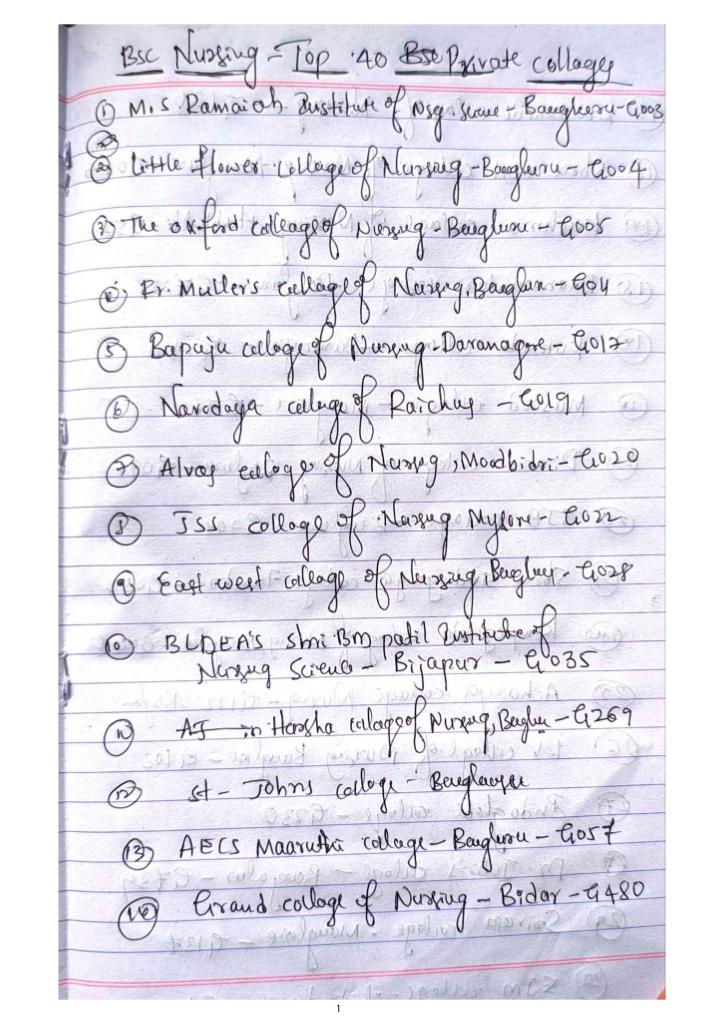 Bsc Nursing - Top 40 Bsc Private collages
① M.S. Ramaiah Institute of Nsg. - G003
② Little flower collage of Nursing - Bangluru - G004
③ The oxford colleage of Nursing - Bangluru - G005
Fr. Muller's collage of Nursing, - G04
⑤ Bapuju collage of Nursing - Davanagre - G017
⑥ Navodaya collage of Raichur - G019
⑦ Alvas collage of Nursing, Moodbidri - G020
⑧ JSS collage of Nursing Mysore - G022
⑨ East west collage of Nursing, - G028
⑩ BLDEA's shri Bm patil Institute of
Nursing Science - Bijapur - G035
⑪ Harsha collage of Nursing, - G269
⑫ st - Johns collage -
⑬ AECS Maaruthi collage - Bangluru - G057
Grand collage of Nursing - Bidar - G480
1